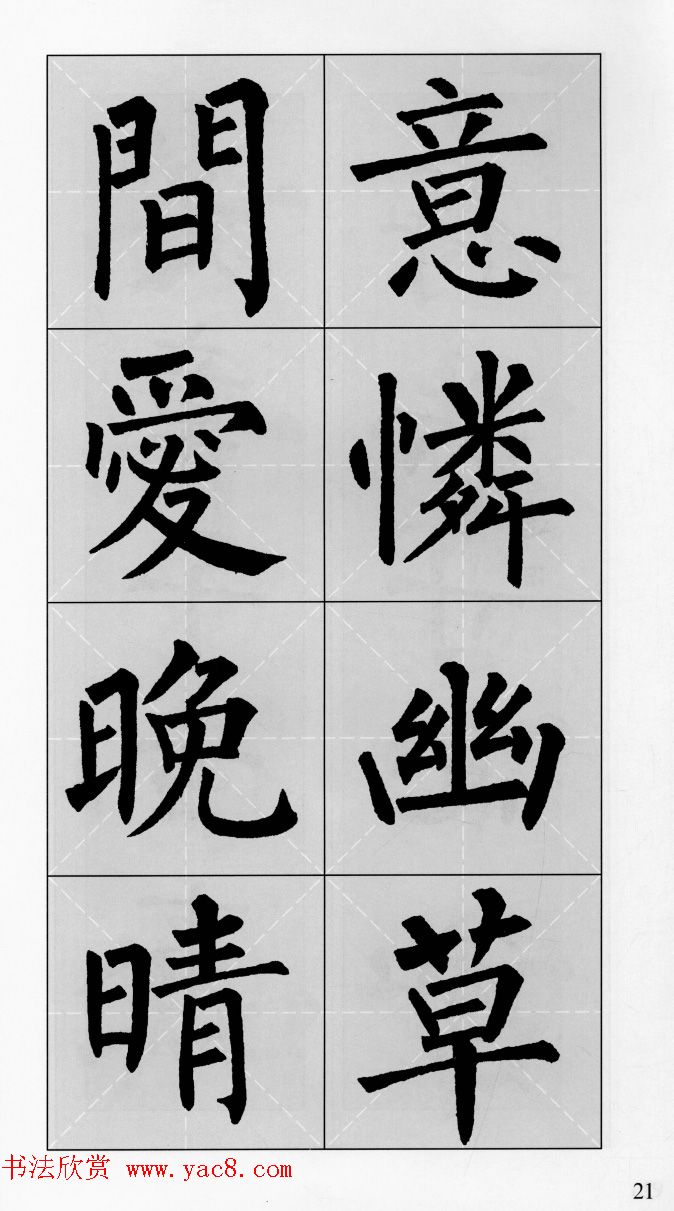 意憐幽草
間愛晚晴
书法欣赏 www.yac8.com
21